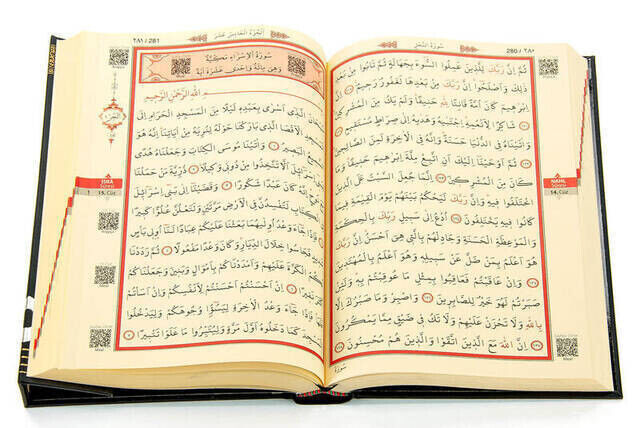 سُورَةُ النَّحْلِ
280 / ٢٨٠
ثُمَّ اِنَّ رَبَّكَ لِلَّذِينَ عَمِلُوا السُّوءَ بِجَهَالَةٍ ثُمَّ تَابُوا مِنْ بَعْدِ
ذٰلِكَ وَاَصْلَحُوا اِنَّ رَبَّكَ مِنْ بَعْدِهَا لَغَفُورٌ رَحِيمٌ اِنَّ
اِبْرٰهِيمَ كَانَ اُمَّةً قَانِتًا لِلّٰهِ حَنِيفًا وَلَمْ يَكُ مِنَ الْمُشْرِكِينَ
شَاكِرًا لِاَنْعُمِهِ اِجْتَبٰيهُ وَهَدٰيهُ اِلٰى صِرَاطٍ مُسْتَقِيمٍ
وَاٰتَيْنَاهُ فِي الدُّنْيَا حَسَنَةً وَاِنَّهُ فِي الْاٰخِرَةِ لَمِنَ الصَّالِحِينَ
ثُمَّ اَوْحَيْنَا اِلَيْكَ اَنِ اتَّبِعْ مِلَّةَ اِبْرٰهِيمَ حَنِيفًا وَمَا
كَانَ مِنَ الْمُشْرِكِينَ اِنَّمَا جُعِلَ السَّبْتُ عَلَى الَّذِينَ
اخْتَلَفُوا فِيهِ وَاِنَّ رَبَّكَ لَيَحْكُمُ بَيْنَهُمْ يَوْمَ الْقِيٰمَةِ فِيمَا
كَانُوا فِيهِ يَخْتَلِفُونَ اُدْعُ اِلٰى سَبِيلِ رَبِّكَ بِالْحِكْمَةِ
وَالْمَوْعِظَةِ الْحَسَنَةِ وَجَادِلْهُمْ بِالَّتِي هِيَ اَحْسَنُ اِنَّ رَبَّكَ
هُوَ اَعْلَمُ بِمَنْ ضَلَّ عَنْ سَبِيلِهِ وَهُوَ اَعْلَمُ بِالْمُهْتَدِينَ
وَاِنْ عَاقَبْتُمْ فَعَاقِبُوا بِمِثْلِ مَا عُوقِبْتُمْ بِهِ وَلَئِنْ
صَبَرْتُمْ لَهُوَ خَيْرٌ لِلصَّابِرِينَ وَاصْبِرْ وَمَا صَبْرُكَ اِلَّا
بِاللّٰهِ وَلَا تَحْزَنْ عَلَيْهِمْ وَلَا تَكُ فِي ضَيْقٍ مِمَّا يَمْكُرُونَ
اِنَّ اللّٰهَ مَعَ الَّذِينَ اتَّقَوْا وَالَّذِينَ هُمْ مُحْسِنُونَ
سُورَةُ
NAHL
Sûresi
14. Cüz
Meal
اَلْجُزْءُ الْخَامِسَ عَشَرَ
٢٨١ / 281
سُورَةُ الْاِسْرَاءِ مَكِّيَّةٌ
وَهِيَ مِائَةٌ وَاِحْدٰى عَشْرَةَ اٰيَةً
بِسْمِ اللّٰهِ الرَّحْمٰنِ الرَّحِيمِ
سُبْحَانَ الَّذِي اَسْرٰى بِعَبْدِهِ لَيْلًا مِنَ الْمَسْجِدِ الْحَرَامِ اِلَى
الْمَسْجِدِ الْاَقْصَا الَّذِي بَارَكْنَا حَوْلَهُ لِنُرِيَهُ مِنْ اٰيَاتِنَا اِنَّهُ هُوَ
السَّمِيعُ الْبَصِيرُ وَاٰتَيْنَا مُوسَى الْكِتَابَ وَجَعَلْنَاهُ هُدًى
لِبَنِي اِسْرَائِيلَ اَلَّا تَتَّخِذُوا مِنْ دُونِي وَكِيلًا ذُرِّيَّةَ مَنْ حَمَلْنَا
مَعَ نُوحٍ اِنَّهُ كَانَ عَبْدًا شَكُورًا وَقَضَيْنَا اِلٰى بَنِي اِسْرَائِيلَ
فِي الْكِتَابِ لَتُفْسِدُنَّ فِي الْاَرْضِ مَرَّتَيْنِ وَلَتَعْلُنَّ عُلُوًّا كَبِيرًا
فَاِذَا جَاءَ وَعْدُ اُولٰيهُمَا بَعَثْنَا عَلَيْكُمْ عِبَادًا لَنَا اُولِي بَأْسٍ
شَدِيدٍ فَجَاسُوا خِلَالَ الدِّيَارِ وَكَانَ وَعْدًا مَفْعُولًا ثُمَّ رَدَدْنَا
لَكُمُ الْكَرَّةَ عَلَيْهِمْ وَاَمْدَدْنَاكُمْ بِاَمْوَالٍ وَبَنِينَ وَجَعَلْنَاكُمْ
اَكْثَرَ نَفِيرًا اِنْ اَحْسَنْتُمْ اَحْسَنْتُمْ لِاَنْفُسِكُمْ وَاِنْ اَسَأْتُمْ
فَلَهَا فَاِذَا جَاءَ وَعْدُ الْاٰخِرَةِ لِيَسُوؤُا وُجُوهَكُمْ وَلِيَدْخُلُوا
الْمَسْجِدَ كَمَا دَخَلُوهُ اَوَّلَ مَرَّةٍ وَلِيُتَبِّرُوا مَا عَلَوْا تَتْبِيرًا
اَلْجُزْءُ
İSRA
Sûresi
1
15. Cüz
Meal